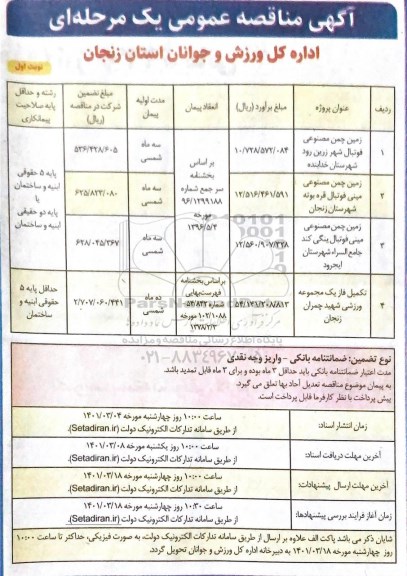 آگهی مناقصه عمومی یک مرحله‌ای
اداره کل ورزش و جوانان استان زنجان
نوبت اول
ردیف
عنوان پروژه
مبلغ برآورد (ریال)
انعقاد پیمان
مدت اولیه پیمان
مبلغ تضمین شرکت در مناقصه (ریال)
رشته و حداقل پایه صلاحیت پیمانکاری
۱
زمین چمن مصنوعی
فوتبال شهر زرین رود
شهرستان خدابنده
۱۰/۷۲۸/۵۷۲/۰۸۴
سه ماه شمسی
۵۳۶/۴۲۸/۶۰۵
۲
زمین چمن مصنوعی
مینی فوتبال قره بوته
شهرستان زنجان
۱۲/۵۱۶/۴۶۱/۵۹۱
سه ماه شمسی
۶۲۵/۸۲۳/۰۸۰
۳
زمین چمن مصنوعی
مینی فوتبال ینگی کند
جامع السراء شهرستان
ایجرود
۱۲/۵۶۰/۹۰۷/۳۳۸
سه ماه شمسی
۶۲۸/۰۴۵/۳۶۷
بر اساس
بخشنامه
سر جمع شماره
۹۶/۱۲۹۹۱۸۸
مورخه
۱۳۹۶/۵/۴
پایه ۵ حقوقی
ابنیه و ساختمان
یا
پایه دو حقیقی
ابنیه و ساختمان
۴
تکمیل فاز یک مجموعه
ورزشی شهید چمران
زنجان
۵۴/۱۴۱/۲۰۸/۸۱۳
براساس بخشنامه
فهرست‌بهایی
شماره ۵۴/۸۴۲-
۱۰۲/۱۰۸۸ مورخه
۱۳۷۸/۲/۳
ده ماه شمسی
۲/۷۰۷/۰۶۰/۴۴۱
حداقل پایه ۵
حقوقی ابنیه و
ساختمان
نوع تضمین: ضمانتنامه بانکی - واریز وجه نقدی
مدت اعتبار ضمانتنامه بانکی باید حداقل ۳ ماه بوده و برای ۳ ماه قابل تمدید باشد.
به پیمان موضوع مناقصه تعدیل آحاد بها تعلق می گیرد.
پیش پرداخت با نظر کارفرما قابل پرداخت است.
زمان انتشار اسناد:
ساعت ۱۰:۰۰ روز چهارشنبه مورخه ۱۴۰۱/۰۳/۰۴
از طریق سامانه تدارکات الکترونیک دولت (Setadiran.ir).
آخرین مهلت دریافت اسناد:
ساعت ۱۰:۰۰ روز یکشنبه مورخه ۱۴۰۱/۰۳/۰۸
از طریق سامانه تدارکات الکترونیک دولت (Setadiran.ir).
آخرین مهلت ارسال پیشنهادات:
ساعت ۱۰:۰۰ روز چهارشنبه مورخه ۱۴۰۱/۰۳/۱۸
از طریق سامانه تدارکات الکترونیک دولت (Setadiran.ir).
زمان آغاز فرایند بررسی پیشنهادها:
ساعت ۱۰:۳۰ روز چهارشنبه مورخه ۱۴۰۱/۰۳/۱۸
از طریق سامانه تدارکات الکترونیک دولت (Setadiran.ir).
شایان ذکر می باشد پاکت الف علاوه بر ارسال از طریق سامانه تدارکات الکترونیک دولت، به صورت فیزیکی، حداکثر تا ساعت ۱۰:۰۰
روز چهارشنبه مورخه ۱۴۰۱/۰۳/۱۸ به دبیرخانه اداره کل ورزش و جوانان تحویل گردد.